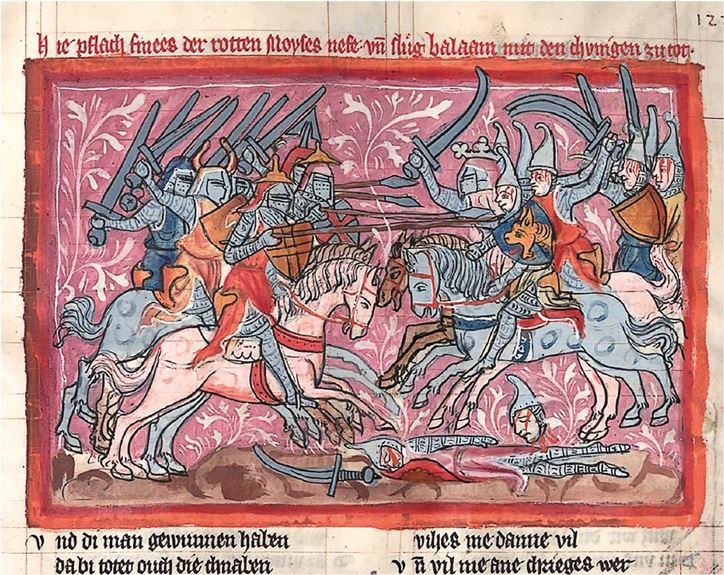 12
Hie pflach finees der rotten Moyses nefe · vñ slůg balaam mit den chvnigen zu tot ·
vnd di man gewunnen haben
da bi totet ouch die chnaben
vihes me danne vil
vñ vil me ane chrieges wer